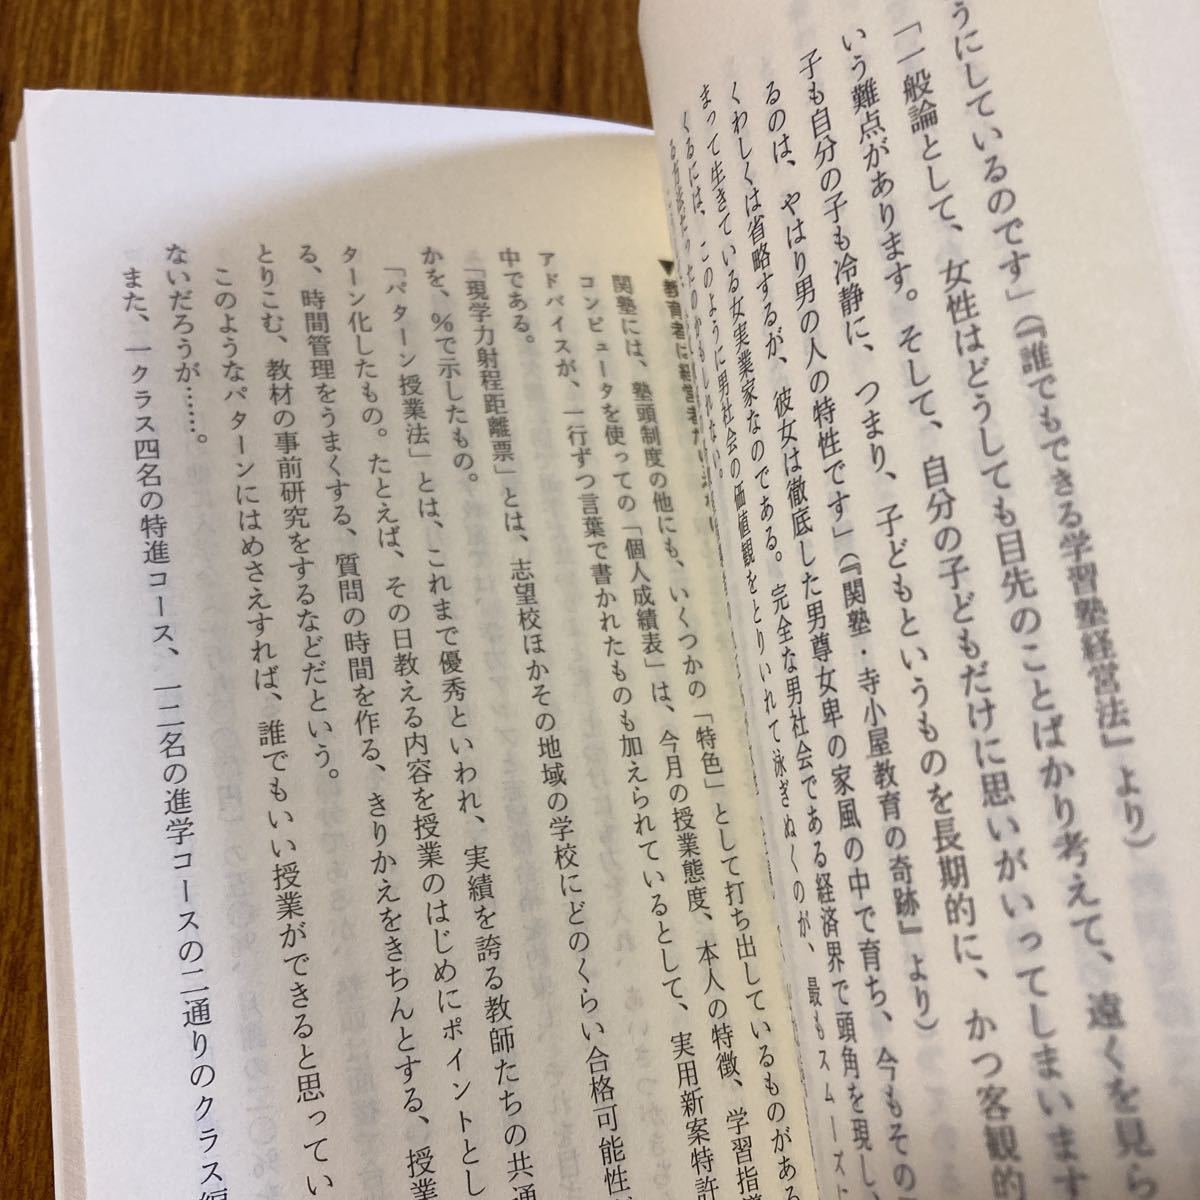 うにしているのです」(『誰でもできる学習塾経営法』より)
「一般論として、女性はどうしても目先のことばかり考えて、遠くを見ら
いう難点があります。そして、自分の子どもだけに思いがいってしまいます
子も自分の子も冷静に、つまり、子どもというものを長期的に、かつ客観的
るのは、やはり男の人の特性です」(『関塾・寺小屋教育の奇跡』より)
くわしくは省略するが、彼女は徹底した男尊女卑の家風の中で育ち、今もその
まって生きている女実業家なのである。完全な男社会である経済界で頭角を現し、
くるには、このように男社会の価値観をとりいれて泳ぎぬくのが、最もスムーズ
かもしれない。
▼教育者に経営者
関塾には、塾頭制度の他にも、いくつかの「特色」として打ち出しているものがある
コンピュータを使っての「個人成績表」は、今月の授業態度、本人の特徴、学習指導
アドバイスが、一行ずつ言葉で書かれたものも加えられているとして、実用新案特許
中である。
「現学力射程距離票」とは、志望校ほかその地域の学校にどのくらい合格可能性が
かを、%で示したもの。
「パターン授業法」とは、これまで優秀といわれ、実績を誇る教師たちの共通
ターン化したもの。たとえば、その日教える内容を授業のはじめにポイントとし
る、時間管理をうまくする、質問の時間を作る、きりかえをきちんとする、授業
とりこむ、教材の事前研究をするなどだという。
このようなパターンにはめさえすれば、誰でもいい授業ができると思ってい
ないだろうが……。
また、一クラス四名の特進コース、一二名の進学コースの二通りのクラス編